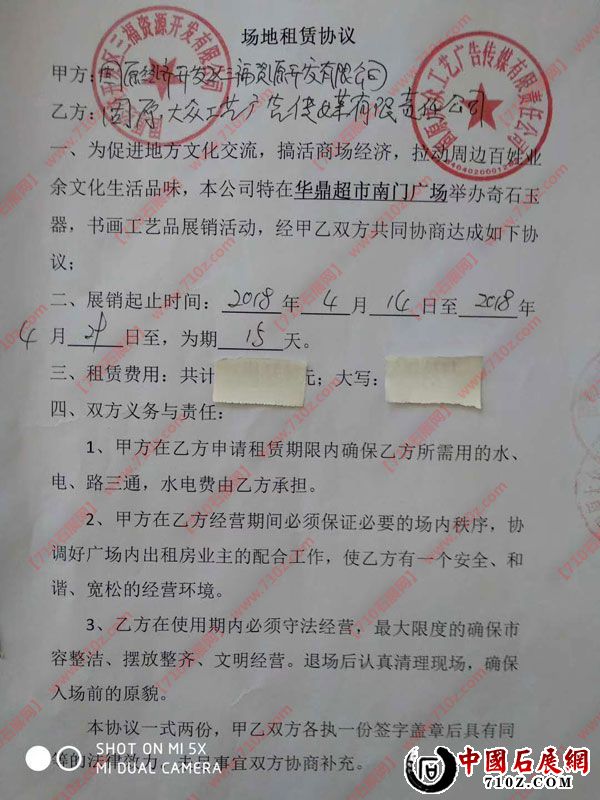 场地租赁协议
甲方：固原经济开发区三福资源开发有限公司
乙方：固原大众工艺广告传媒有限责任公司
一、为促进地方文化交流，搞活商场经济，拉动周边百姓业
余文化生活品味，本公司特在华鼎超市南门广场举办奇石玉
器，书画工艺品展销活动，经甲乙双方共同协商达成如下协
议；
二、展销起止时间：2018年4月14日至2018年
4月 日至，为期15天。
三、租赁费用：共计 元；大写：
四、双方义务与责任：
1、甲方在乙方申请租赁期限内确保乙方所需用的水、
电、路三通，水电费由乙方承担。
2、甲方在乙方经营期间必须保证必要的场内秩序，协
调好广场内出租房业主的配合工作，使乙方有一个安全、和
谐、宽松的经营环境。
3、乙方在使用期内必须守法经营，最大限度的确保市
容整洁、摆放整齐、文明经营。退场后认真清理现场，确保
入场前的原貌。
本协议一式两份，甲乙双方各执一份签字盖章后具有同
等的法律效力，未尽事宜双方协商补充。
SHOT ON MI 5X
MI DUAL CAMERA
中國石展網
710Z.COM
【710石展网】www.710z.com